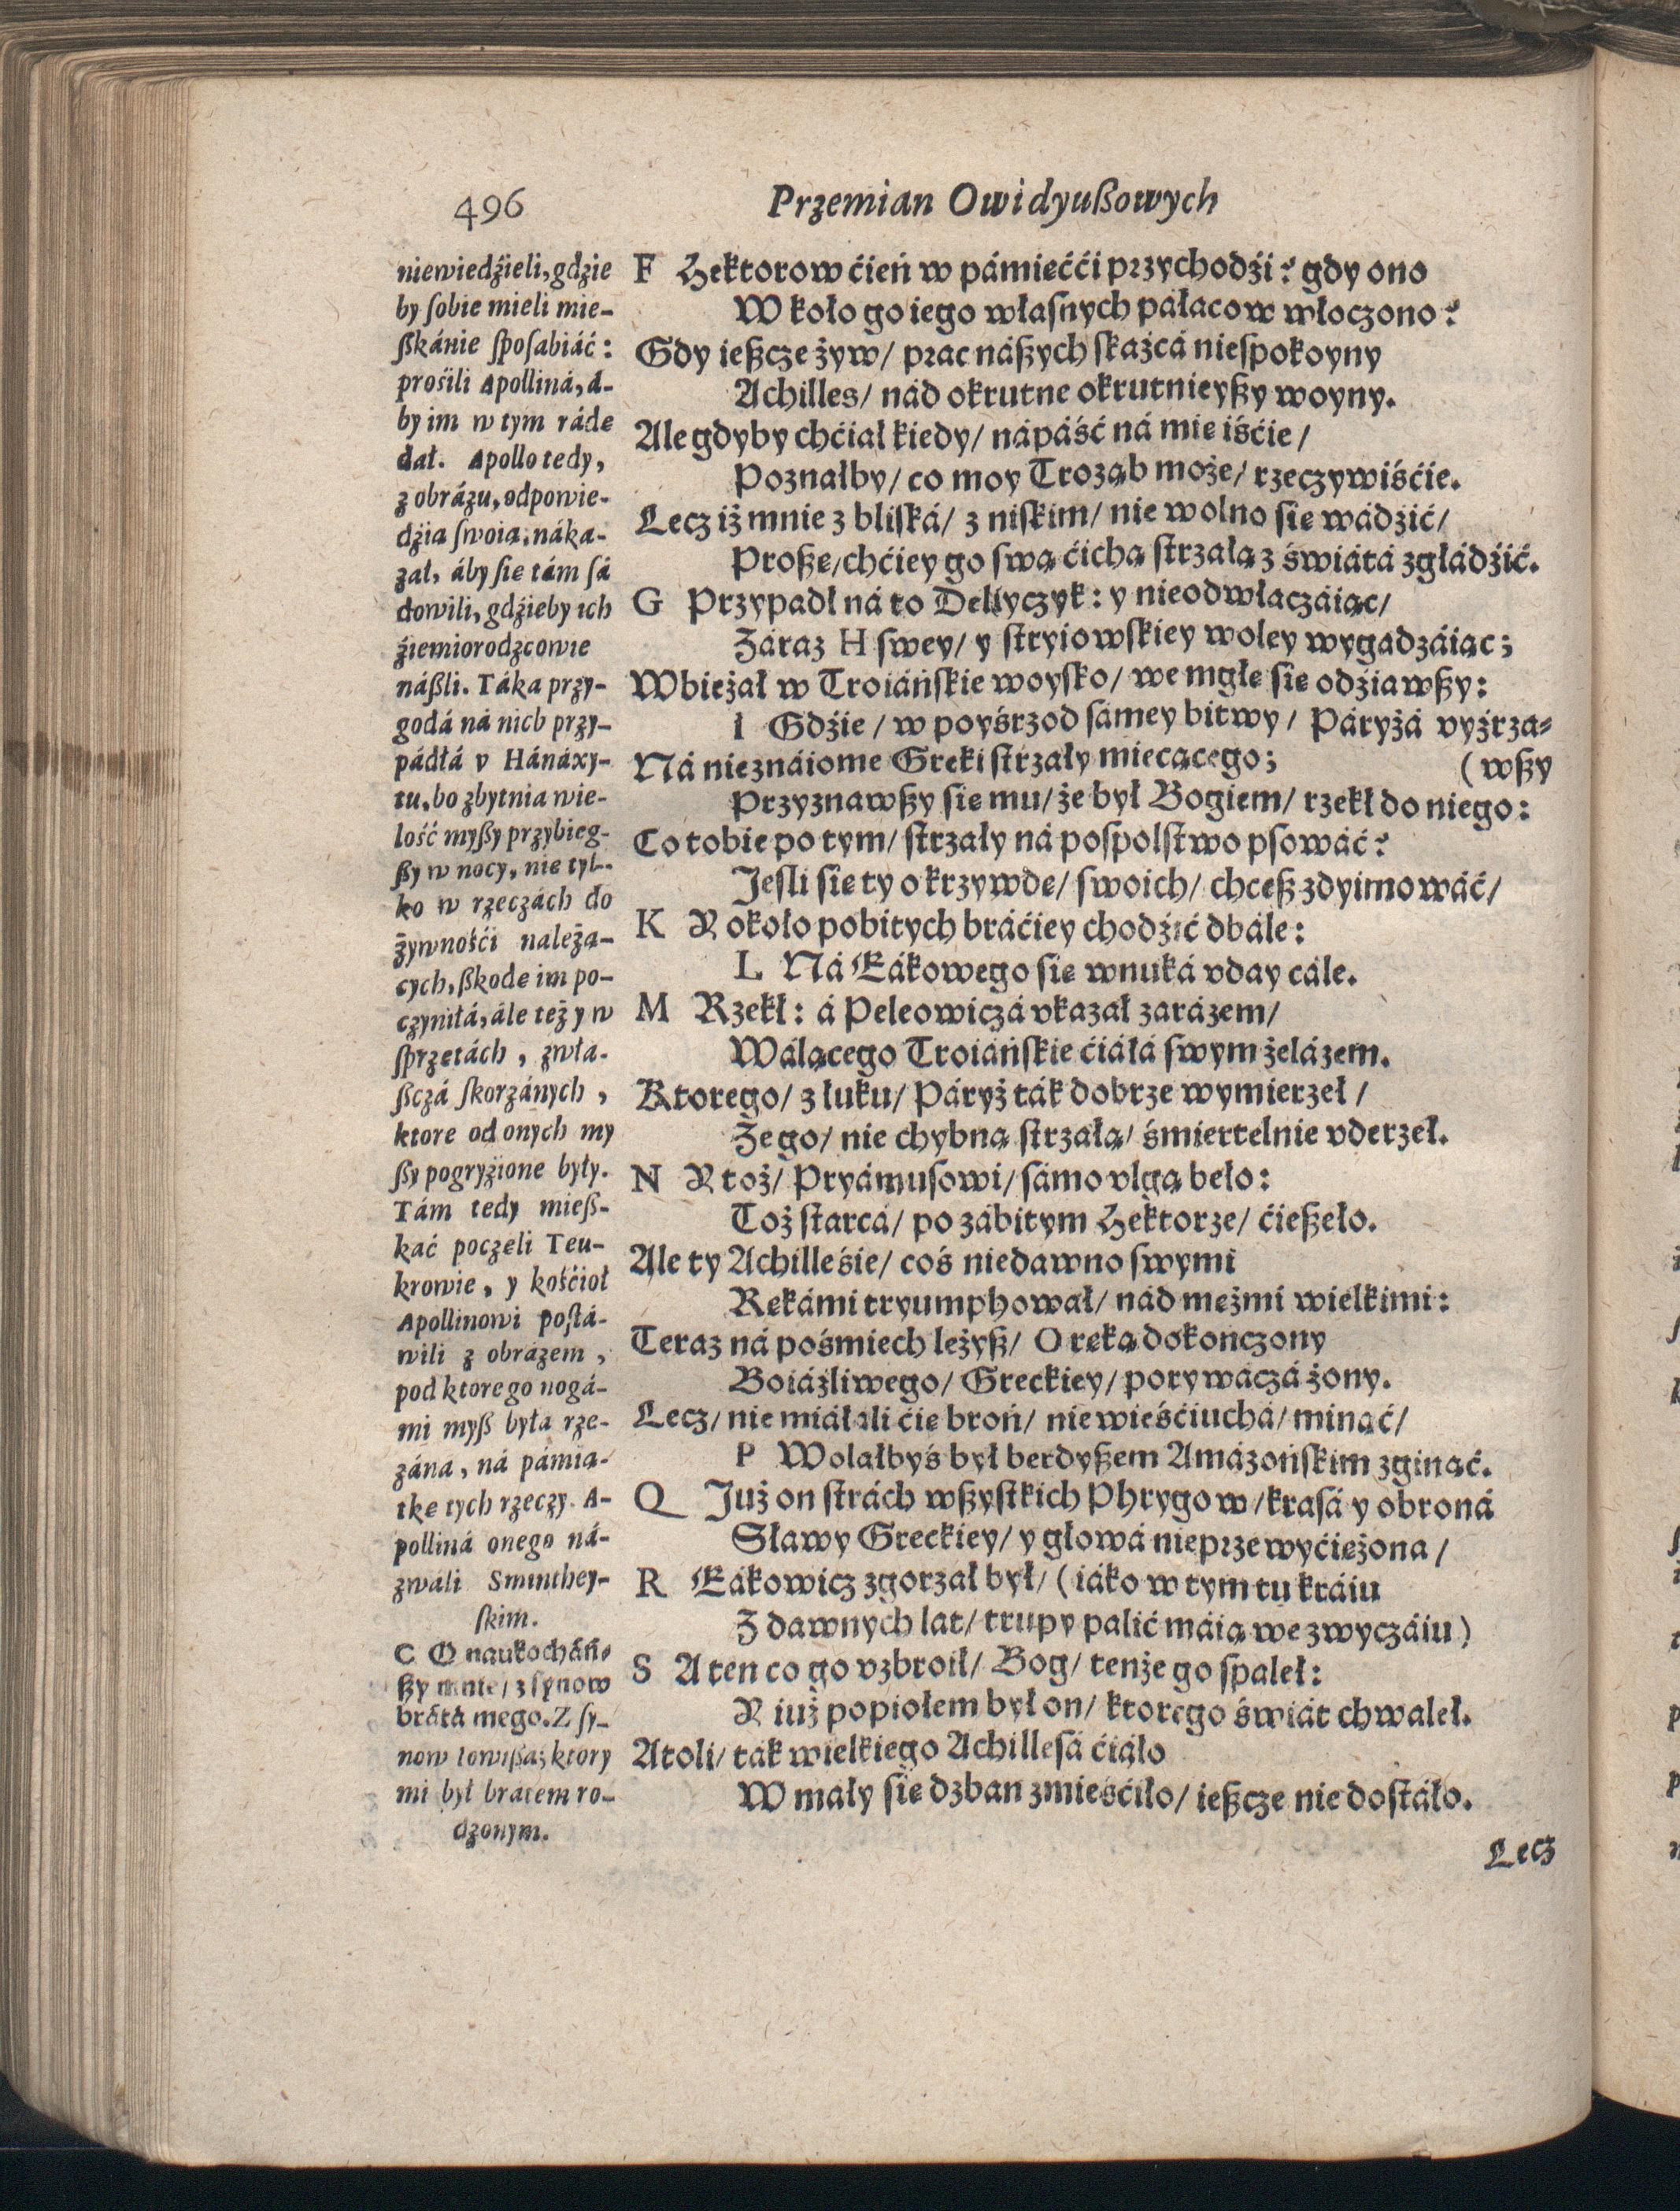 496
Przemian Owidyußowych
niewiedźieli, gdzie
by ſobie mieli mie-
ßkánie ſpoſabiáć:
prośili Apolliná, á-
by im w tym ráde
dał. Apollo tedy,
z obrázu, odpowie-
dźia ſwoia, náka-
zał, áby ſie tám ſá
dowili, gdźieby ich
źiemiorodzcowie
náßli. Táka przy-
godá ná nich przy-
pádłá v Hánáxy-
tu, bo zbytnia wie-
lość myßy przybieg-
ßy w nocy, nie tyl-
ko w rzeczách do
żywnośći należa-
cych, ßkode im po-
czyniłá, ále też y w
ſprzetách, zwła-
ßczá ſkorzánych,
ktore od onych my
ßy pogryźione były.
Tám tedy mieß-
kać poczeli Teu-
krowie, y kośćioł
Apollinowi poſtá-
wili z obrázem,
pod ktorego nogá-
mi myß była rze-
zána, ná pámia-
tke tych rzeczy. A-
polliná onego ná-
zwáli Sminthey-
ſkim.
C O naukocháń-
ßy mnie/ z ſynow
brátá mego. Z ſy-
now Iowißa; ktory
mi był bratem ro-
dzonym.
F Hektorow ćień w pámiećći przychodźi? gdy ono
W koło go iego właſnych pałacow włoczono?
Gdy ießcze żyw/ prac náßych ſkaźcá nieſpokoyny
Achilles/ nád okrutne okrutnieyßy woyny.
Ale gdyby chćiał kiedy/ nápáść ná mie iśćie/
Poznałby/ co moy Troząb może/ rzeczywiśćie.
Lecz iż mnie z bliſká/ z niſkim/ nie wolno ſie wádźić/
Proßę/ chćiey go ſwą ćichą ſtrzałą z świátá zgłádźić.
G Przypadł ná to Dellyczyk: y nieodwłaczáiąc/
Záraz H ſwey/ y ſtryiowſkiey woley wygadzáiąc;
Wbieżał w Troiáńſkie woyſko/ we mgłe ſie odźiawßy:
I Gdźie/ w pośrzod ſámey bitwy/ Páryżá vyźrza-
Ná nieznáiome Greki ſtrzały miecącego; (wßy
Przyznawßy ſie mu/ że był Bogiem/ rzekł do niego:
Co tobie po tym/ ſtrzały ná poſpolſtwo pſowáć?
Jeſli ſie ty o krzywdę/ ſwoich/ chceß zdyimowáć/
K Y około pobitych bráćiey chodźić dbále:
L Ná Eákowego ſie wnuká vday cále.
M Rzekł: á Peleowiczá vkazał zarázem/
Wálącego Troiáńſkie ćiáłá ſwym żelázem.
Ktorego/ z łuku/ Páryż ták dobrze wymierzeł/
Że go/ nie chybną ſtrzałą/ śmiertelnie vderzeł.
N Y toż/ Pryámuſowi/ ſámo vlgą beło:
Toż ſtarcá/ po zábitym Hektorze/ ćießeło.
Ale ty Achilleśie/ coś niedawno ſwymi
Rękámi tryumphował/ nád mężmi wielkimi:
Teraz ná pośmiech leżyß/ O ręką dokończony
Boiáźliwego/ Greckiey/ porywáczá żony.
Lecz/ nie miáłáli ćię broń/ niewieśćiuchá/ minąć/
P Wolałbyś był berdyßem Amázońſkim zginąć.
Q Już on ſtrách wßyſtkich Phrygow/ kraſá y obroná
Sławy Greckiey/ y głowá nieprzewyćiężona/
R Eákowicz zgorzał był/ (iáko w tym tu kráiu
Z dawnych lat/ trupy palić máią we zwyczáiu)
S A ten co go vzbroił/ Bog/ tenże go ſpaleł:
Y iuż popiołem był on/ ktorego świát chwaleł.
Atoli/ ták wielkiego Achilleſá ćiáło
W mały ſię dzban zmieśćiło/ ießcze nie doſtáło.
Lecz